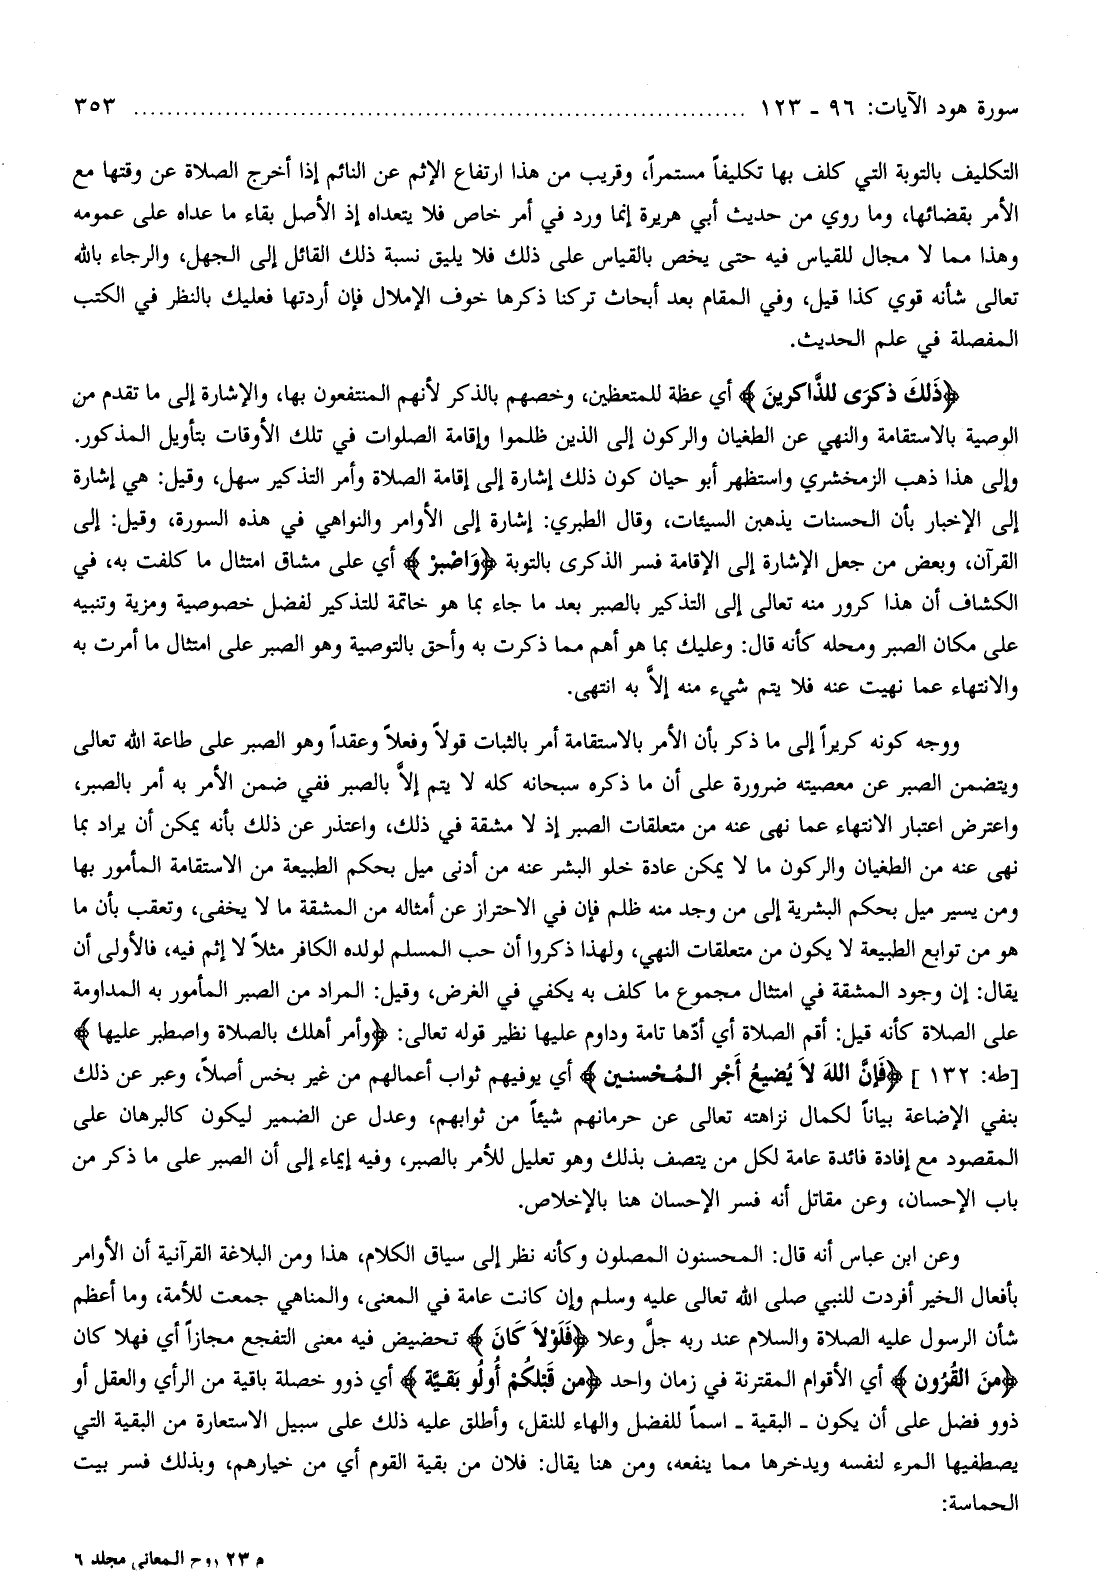 سورة هود الآيات: ٩٦ ـ ١٢٣ ........................................................................ ٣٥٣
التكليف بالتوبة التي كلف بها تكليفاً مستمراً، وقريب من هذا ارتفاع الإثم عن النائم إذا أخرج الصلاة عن وقتها مع
الأمر بقضائها، وما روي من حديث أبي هريرة إنما ورد في أمر خاص فلا يتعداه إذ الأصل بقاء ما عداه على عمومه
وهذا مما لا مجال للقياس فيه حتى يخص بالقياس على ذلك فلا يليق نسبة ذلك القائل إلى الجهل، والرجاء بالله
تعالى شأنه قوي كذا قيل، وفي المقام بعد أبحاث تركنا ذكرها خوف الإملال فإن أردتها فعليك بالنظر في الكتب
المفصلة في علم الحديث.
﴿ذَلكَ ذكرَى للذَّاكرينَ﴾ أي عظة للمتعظين، وخصهم بالذكر لأنهم المنتفعون بها، والإشارة إلى ما تقدم من
الوصية بالاستقامة والنهي عن الطغيان والركون إلى الذين ظلموا وإقامة الصلوات في تلك الأوقات بتأويل المذكور.
وإلى هذا ذهب الزمخشري واستظهر أبو حيان كون ذلك إشارة إلى إقامة الصلاة وأمر التذكير سهل، وقيل: هي إشارة
إلى الإخبار بأن الحسنات يذهبن السيئات، وقال الطبري: إشارة إلى الأوامر والنواهي في هذه السورة، وقيل: إلى
القرآن، وبعض من جعل الإشارة إلى الإقامة فسر الذكرى بالتوبة ﴿وَاصْبرْ﴾ أي على مشاق امتثال ما كلفت به، في
الكشاف أن هذا كرور منه تعالى إلى التذكير بالصبر بعد ما جاء بما هو خاتمة للتذكير لفضل خصوصية ومزية وتنبيه
على مكان الصبر ومحله كأنه قال: وعليك بما هو أهم مما ذكرت به وأحق بالتوصية وهو الصبر على امتثال ما أمرت به
والانتهاء عما نهيت عنه فلا يتم شيء منه إلاَّ به انتهى.
ووجه كونه كريراً إلى ما ذكر بأن الأمر بالاستقامة أمر بالثبات قولاً وفعلاً وعقداً وهو الصبر على طاعة الله تعالى
ويتضمن الصبر عن معصيته ضرورة على أن ما ذكره سبحانه كله لا يتم إلاَّ بالصبر ففي ضمن الأمر به أمر بالصبر،
واعترض اعتبار الانتهاء عما نهى عنه من متعلقات الصبر إذ لا مشقة في ذلك، واعتذر عن ذلك بأنه يمكن أن يراد بما
نهى عنه من الطغيان والركون ما لا يمكن عادة خلو البشر عنه من أدنى ميل بحكم الطبيعة من الاستقامة المأمور بها
ومن يسير ميل بحكم البشرية إلى من وجد منه ظلم فإن في الاحتراز عن أمثاله من المشقة ما لا يخفى، وتعقب بأن ما
هو من توابع الطبيعة لا يكون من متعلقات النهي، ولهذا ذكروا أن حب المسلم لولده الكافر مثلاً لا إثم فيه، فالأولى أن
يقال: إن وجود المشقة في امتثال مجموع ما كلف به يكفي في الغرض، وقيل: المراد من الصبر المأمور به المداومة
على الصلاة كأنه قيل: أقم الصلاة أي أدّها تامة وداوم عليها نظير قوله تعالى: ﴿وأمر أهلك بالصلاة واصطبر عليها﴾
[طه: ١٣٢] ﴿فَإنَّ اللهَ لاَ يُضيعُ أَجْر المُحْسنين﴾ أي يوفيهم ثواب أعمالهم من غير بخس أصلاً، وعبر عن ذلك
بنفي الإضاعة بياناً لكمال نزاهته تعالى عن حرمانهم شيئاً من ثوابهم، وعدل عن الضمير ليكون كالبرهان على
المقصود مع إفادة فائدة عامة لكل من يتصف بذلك وهو تعليل للأمر بالصبر، وفيه إيماء إلى أن الصبر على ما ذكر من
باب الإحسان، وعن مقاتل أنه فسر الإحسان هنا بالإخلاص.
وعن ابن عباس أنه قال: المحسنون المصلون وكأنه نظر إلى سياق الكلام، هذا ومن البلاغة القرآنية أن الأوامر
بأفعال الخير أفردت للنبي صلى الله تعالى عليه وسلم وإن كانت عامة في المعنى، والمناهي جمعت للأمة، وما أعظم
شأن الرسول عليه الصلاة والسلام عند ربه جلَّ وعلا ﴿فَلَوْلاَ كَانَ﴾ تحضيض فيه معنى التفجع مجازاً أي فهلا كان
﴿منَ القُرُون﴾ أي الأقوام المقترنة في زمان واحد ﴿من قَبْلكُمْ أُولُو بَقيَّة﴾ أي ذوو خصلة باقية من الرأي والعقل أو
ذوو فضل على أن يكون ـ البقية ـ اسماً للفضل والهاء للنقل، وأطلق عليه ذلك على سبيل الاستعارة من البقية التي
يصطفيها المرء لنفسه ويدخرها مما ينفعه، ومن هنا يقال: فلان من بقية القوم أي من خيارهم، وبذلك فسر بيت
الحماسة:
م ٢٣ روح المعاني مجلد ٦